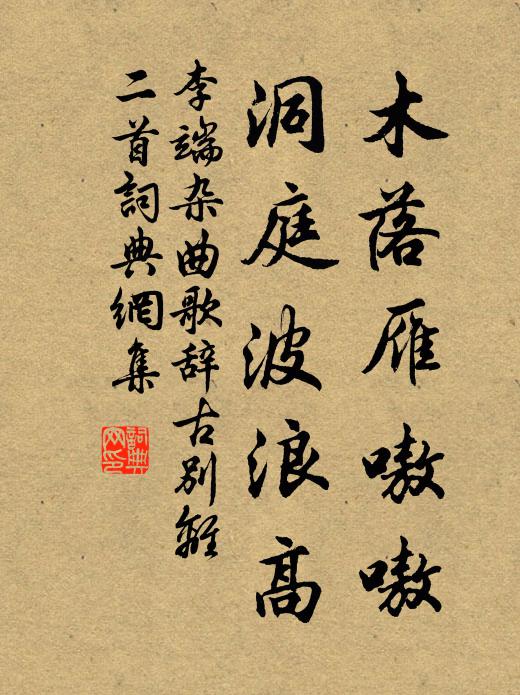 木落雁嗷嗷
洞庭波浪高
李端杂曲歌辞古别離
二首詞典網集
詞典
网印